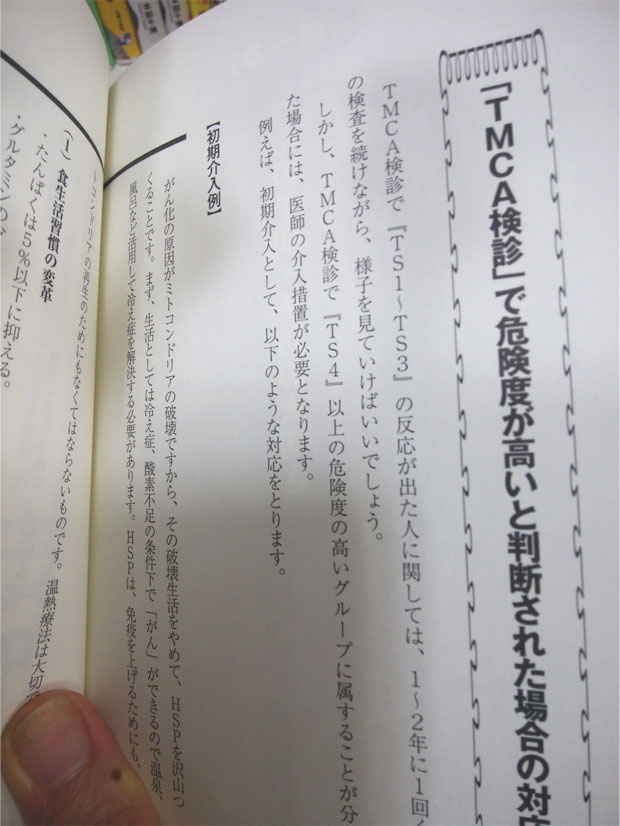 「TMCA検診」で危険度が高いと判断された場合の対応
TMCA検診で『TS1〜TS3』の反応が出た人に関しては、1〜2年に1回
の検査を続けながら、様子を見ていけばいいでしょう。
しかし、TMCA検診で『TS4』以上の危険度の高いグループに属することが分
た場合には、医師の介入措置が必要となります。
例えば、初期介入として、以下のような対応をとります。
【初期介入例】
がん化の原因がミトコンドリアの破壊ですから、その破壊生活をやめて、HSPを沢山つ
くることです。まず、生活としては冷え症、酸素不足の条件下で「がん」ができるので温泉、
風呂など活用して冷え症を解決する必要があります。HSPは、免疫を上げるためにも、
トコンドリアの再生のためにもなくてはならないものです。温熱療法は大切で
(1)食生活習慣の変革
・たんぱくは5%以下に抑える。
・グルタミンの